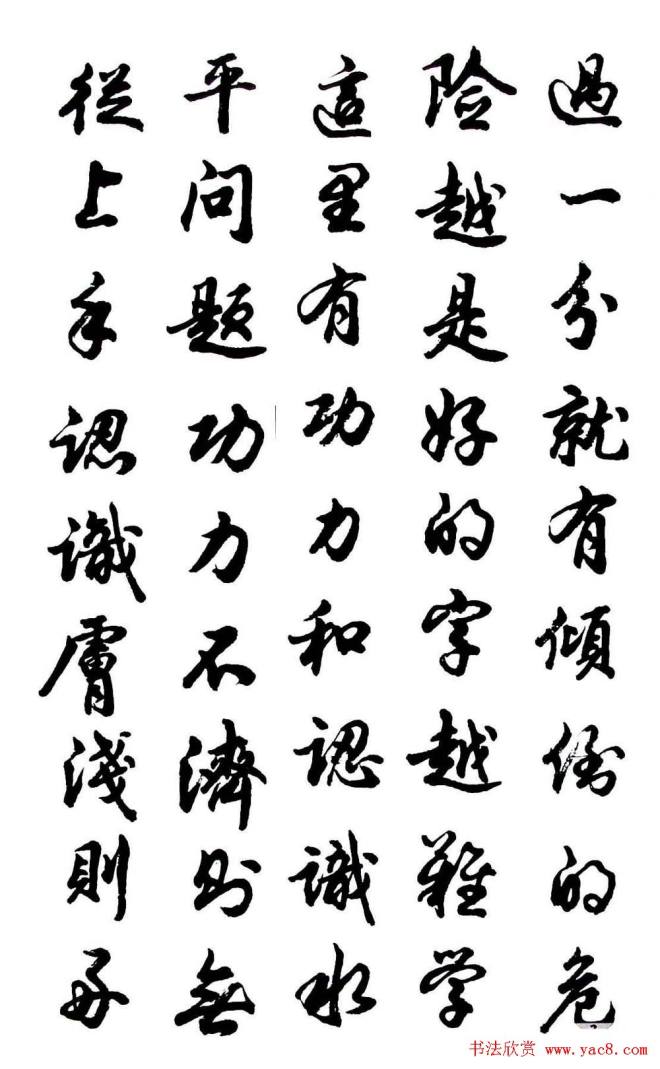 過一分就有傾倒的危
险越是好的字越難学
這里有功力和認識水
平问题功力不濟则無
從上手認識膚淺則每
书法欣赏 www.yac8.com